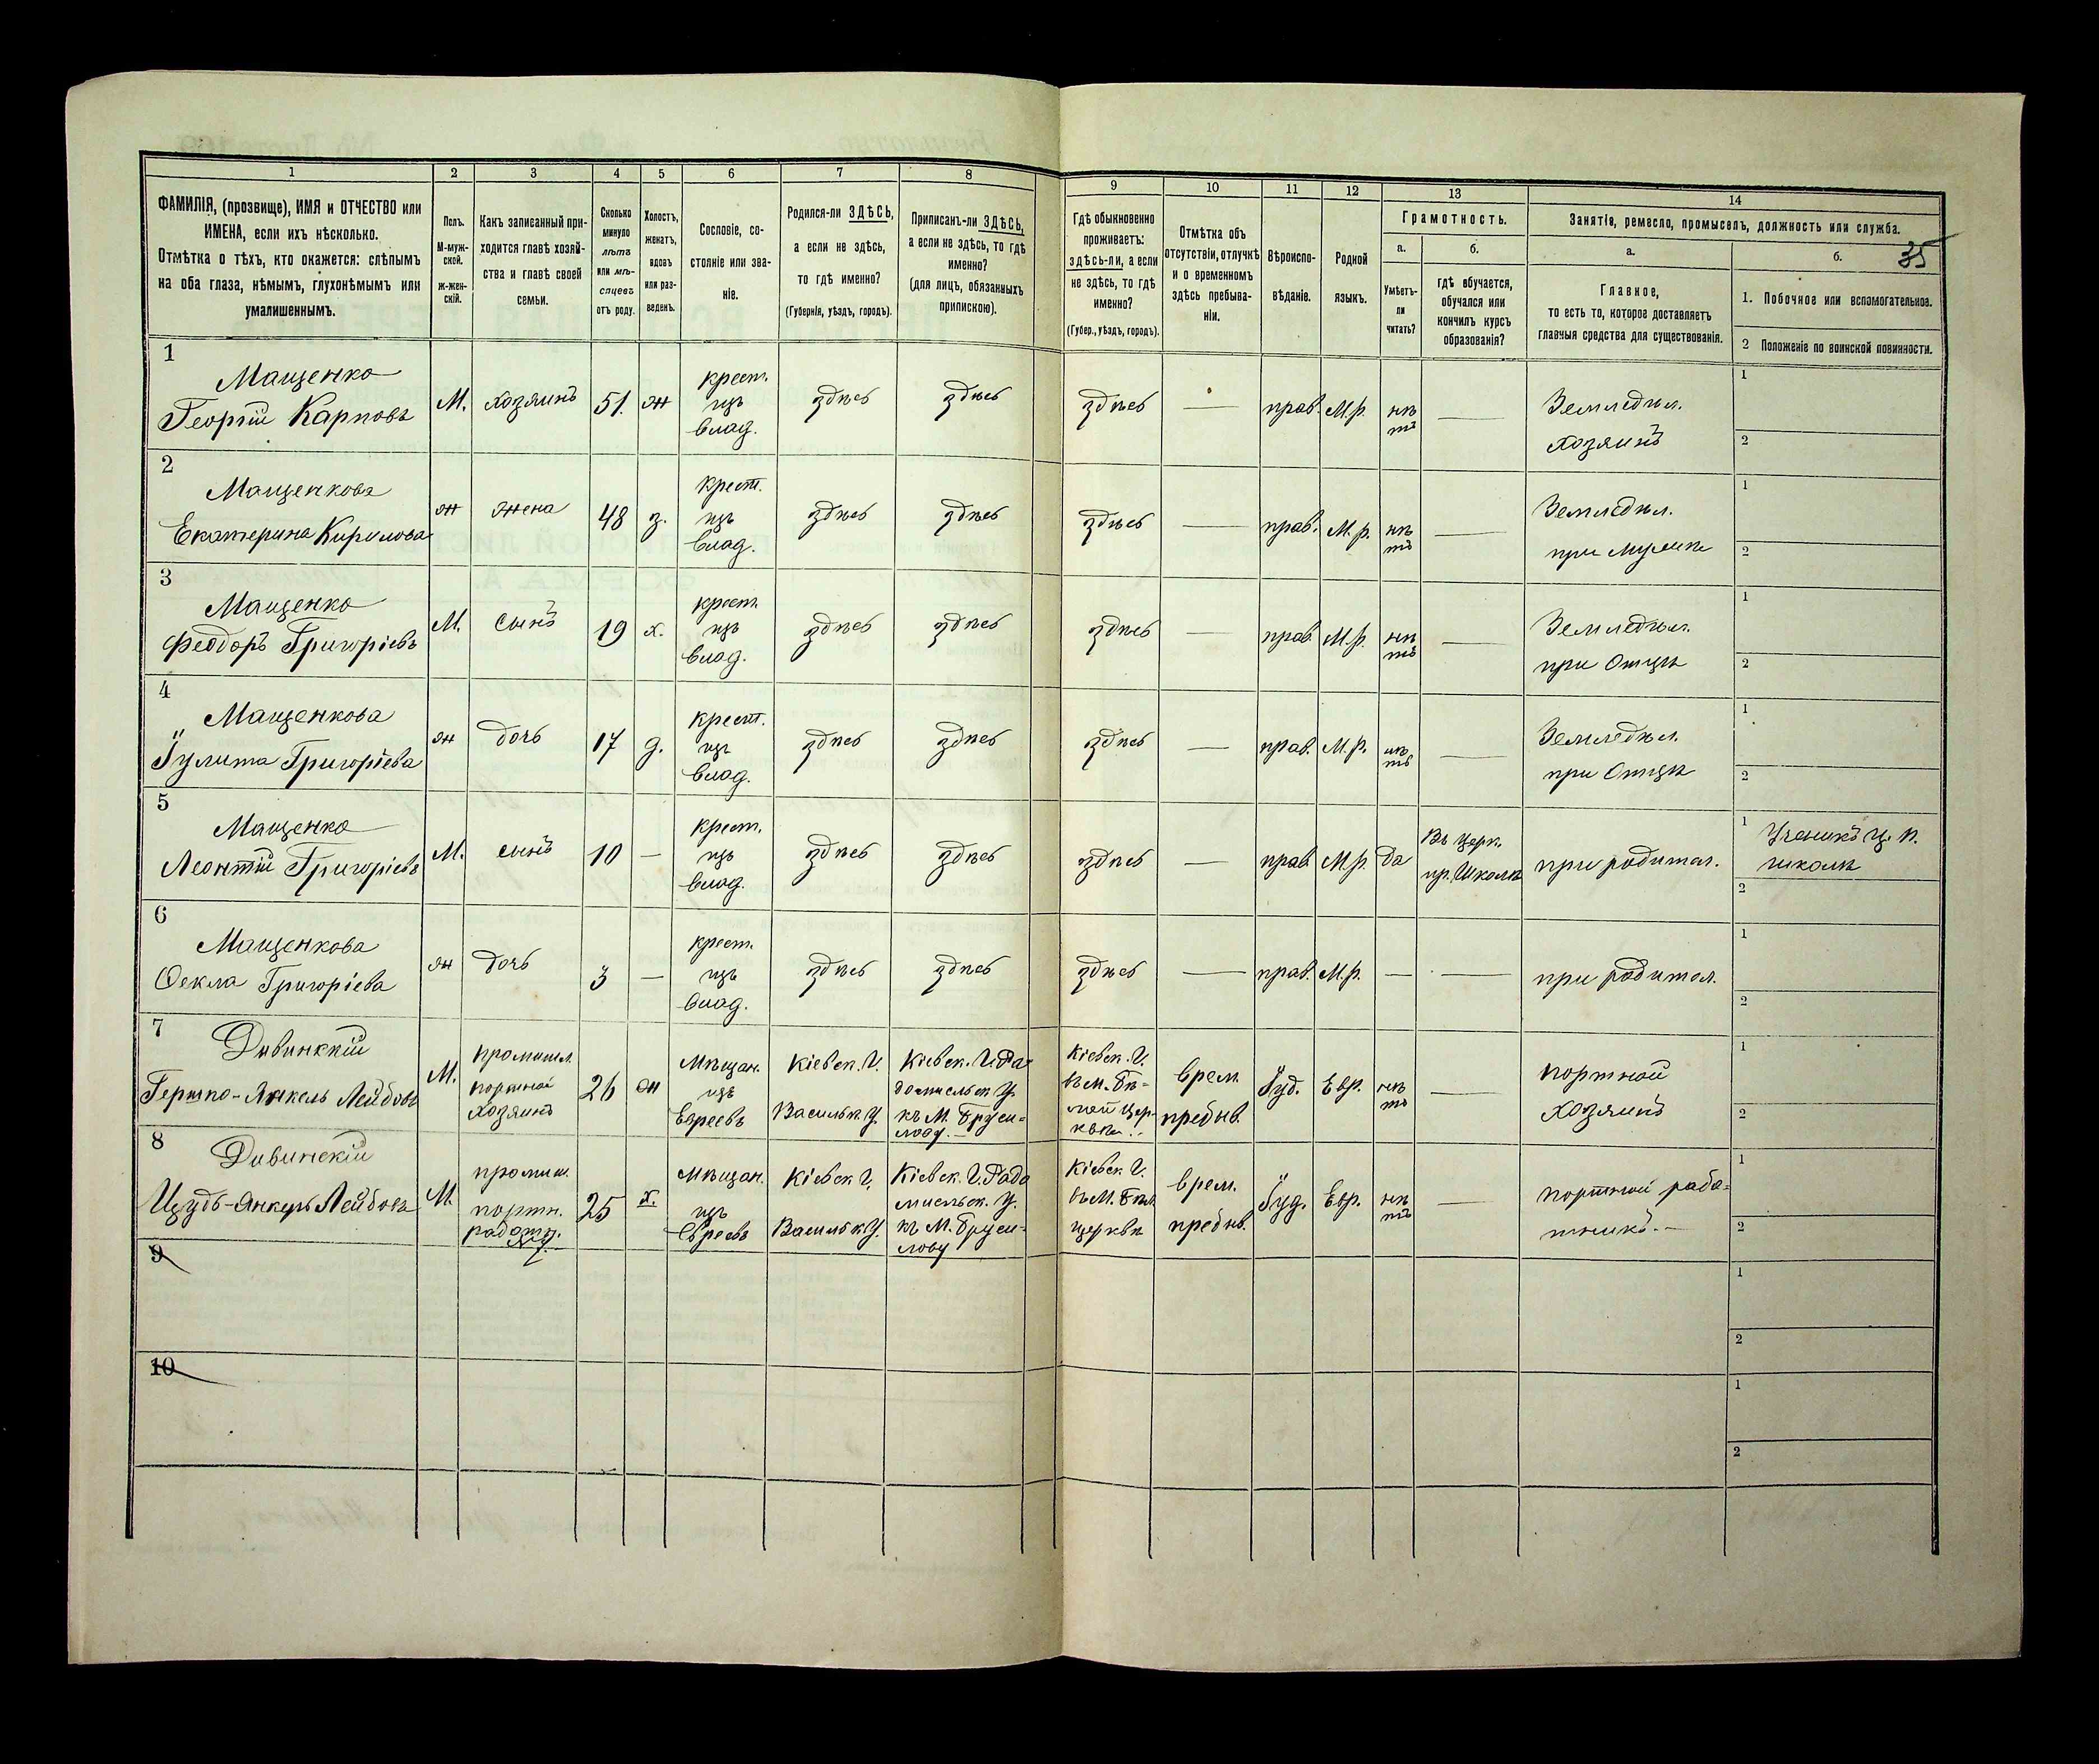 35
1 2 3 4 5 6 7 8 9 10 11 12 13 14
ФАМИЛІЯ, (прозвище), ИМЯ и ОТЧЕСТВО или
ИМЕНА, если ихъ нѣсколько.
Отмѣтка о тѣхъ, кто окажется: слѣпымъ
на оба глаза, нѣмымъ, глухонѣмымъ или
умалишеннымъ.
Полъ.
М-муж-
ской.
ж-жен-
скій.
Какъ записанный при-
ходится главѣ хозяй-
ства и главѣ своей
семьи.
Сколько
минуло
лѣтъ
или мѣ-
сяцевъ
отъ роду.
Холостъ,
женатъ,
вдовъ
или раз-
веденъ.
Сословіе, со-
стояніе или зва-
ніе.
Родился-ли ЗДѢСЬ,
а если не здѣсь,
то гдѣ именно?
(Губернія, уѣздъ, городъ).
Приписанъ-ли ЗДѢСЬ,
а если не здѣсь, то гдѣ
именно?
(для лицъ, обязанныхъ
припискою).
Гдѣ обыкновенно
проживаетъ:
здѣсь-ли, а если
не здѣсь, то гдѣ
именно?
(Губер., уѣздъ, городъ).
Отмѣтка объ
отсутствіи, отлучкѣ
и о временномъ
здѣсь пребыва-
ніи.
Вѣроиспо-
вѣданіе.
Родной
языкъ.
Грамотность.
а.
Умѣетъ-
ли
читать?
б.
гдѣ обучается,
обучался или
кончилъ курсъ
образованія?
Занятія, ремесло, промыселъ, должность или служба.
а.
Главное,
то есть то, которое доставляетъ
главныя средства для существованія.
б.
1. Побочное или вспомогательное.
2 Положеніе по воинской повинности.
1
Мащенко
Георгій Карповъ
М.
хозяинъ
51.
ж
крест.
изъ
влад.
здѣсь
здѣсь
здѣсь
—
прав.
М.р.
нѣ
тъ
—
Земледѣл.
хозяинъ
1
2
2
Мащенкова
Екатерина Кирилова
ж
жена
48
з.
крест.
изъ
влад.
здѣсь
здѣсь
здѣсь
—
прав.
М.р.
нѣ
тъ
—
Земледѣл.
при мужѣ
1
2
3
Мащенко
Феодоръ Григоріевъ
М.
сынъ
19
х.
крест.
изъ
влад.
здѣсь
здѣсь
здѣсь
—
прав.
М.р.
нѣ
тъ
—
Земледѣл.
при Отцѣ
1
2
4
Мащенкова
Іулита Григоріева
ж
дочь
17
д.
крест.
изъ
влад.
здѣсь
здѣсь
здѣсь
—
прав.
М.р.
нѣ
тъ
—
Земледѣл.
при Отцѣ
1
2
5
Мащенко
Леонтій Григоріевъ
М.
сынъ
10
—
крест.
изъ
влад.
здѣсь
здѣсь
здѣсь
—
прав
М.р.
да
Въ церк.
пр. Школѣ
при родител.
1
Ученикъ ц. п.
школы
2
6
Мащенкова
Ѳекла Григоріева
ж
дочь
3
—
крест.
изъ
влад.
здѣсь
здѣсь
здѣсь
—
прав.
М.р.
—
—
при родител.
1
2
7
Дивинккій
Гершко-Янкель Лейбовъ
М.
промышл.
портной
хозяинъ
26
ж
Мѣщан.
изъ
Евреевъ
Кіевск. Г.
Васильк У.
Кіевск. Г. Ра
домысльск У.
къ М. Бруси-
лову.
Кіевск. Г.
въ м. Бѣ-
лой Цер-
квѣ.
врем.
пребыв.
Іуд.
Евр.
нѣ
тъ
—
портной
хозяинъ
1
2
8
Дивинскій
Янкель Лейбовъ
М.
промыш.
портн.
работн.
25
х.
Мѣщан.
изъ
Евреевъ
Кіевск Г.
Васильк У.
Кіевск. Г. Радо
мысльск. У.
къ М. Бруси-
лову
Кіевск. Г.
въ М. Бѣл.
церквѣ
врем.
пребыв.
Іуд.
Евр.
нѣ
тъ
—
портной рабо-
тникъ.—
1
2
9
1
2
10
1
2